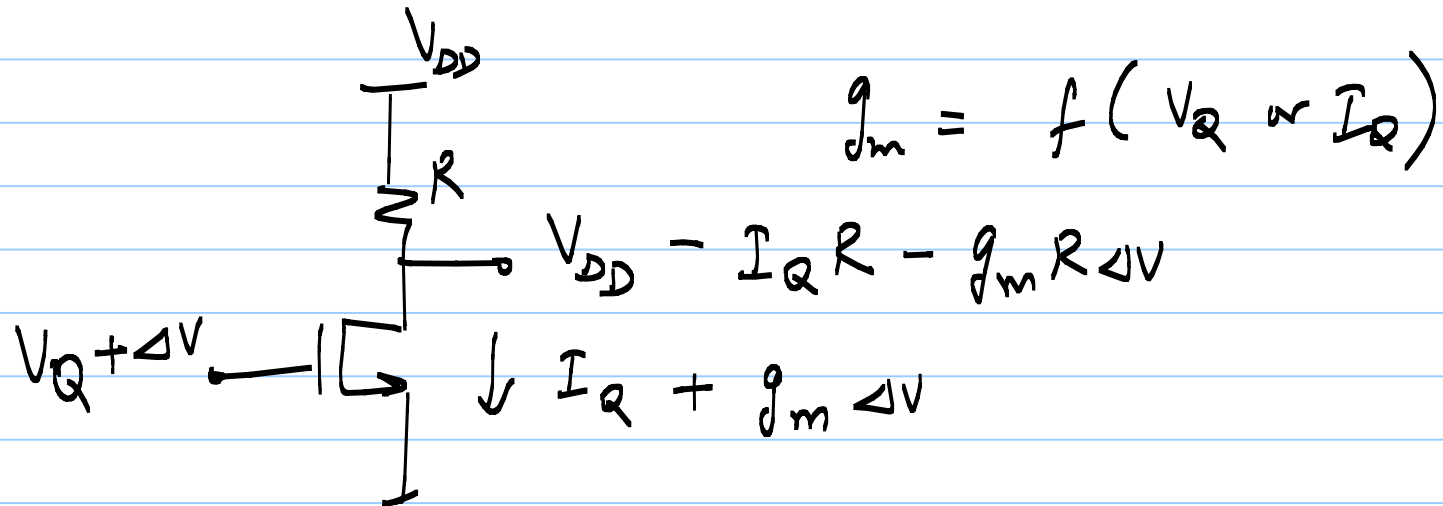 V_DD
g_m = f ( V_Q or I_Q )
R
V_DD - I_Q R - g_m R ΔV
V_Q + ΔV
↓ I_Q + g_m ΔV